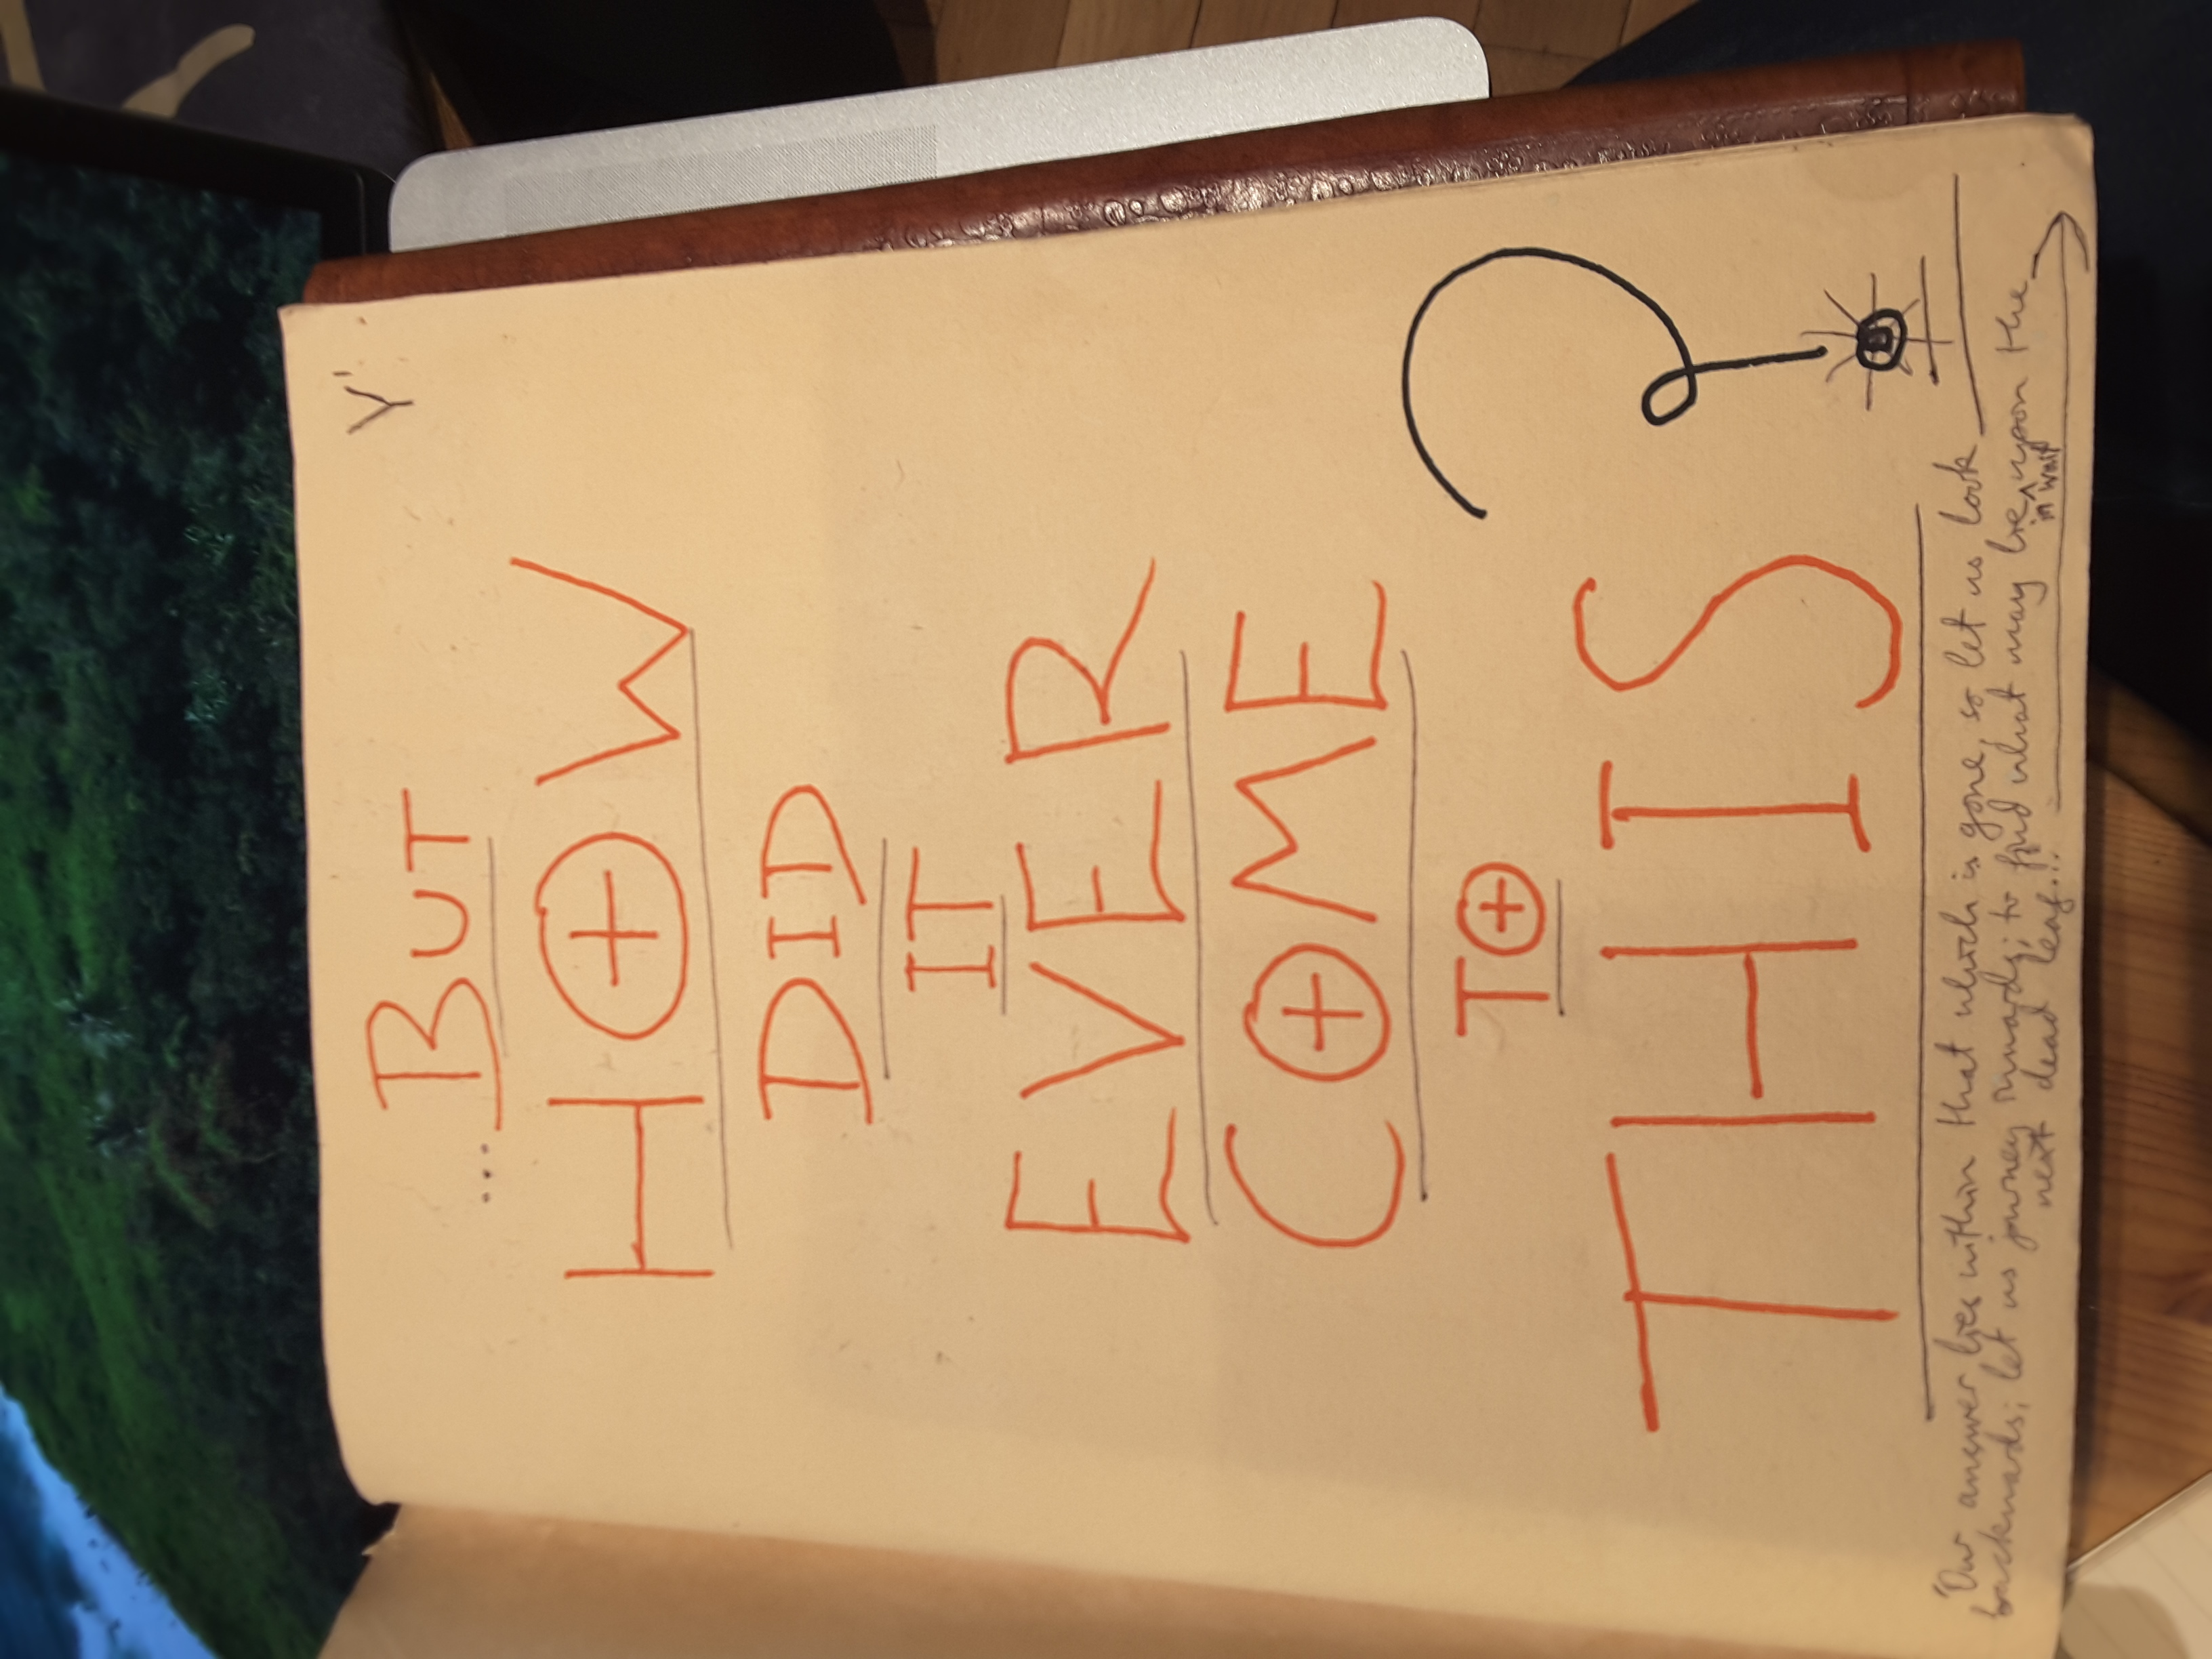 Y'
...BUT
HOW
DID
IT
EVER
COME
TO
THIS?
'Our answer lies within that which is gone, so let us look
backwards; let us journey inwards; to find what may lie in wait upon the
next dead leaf...'